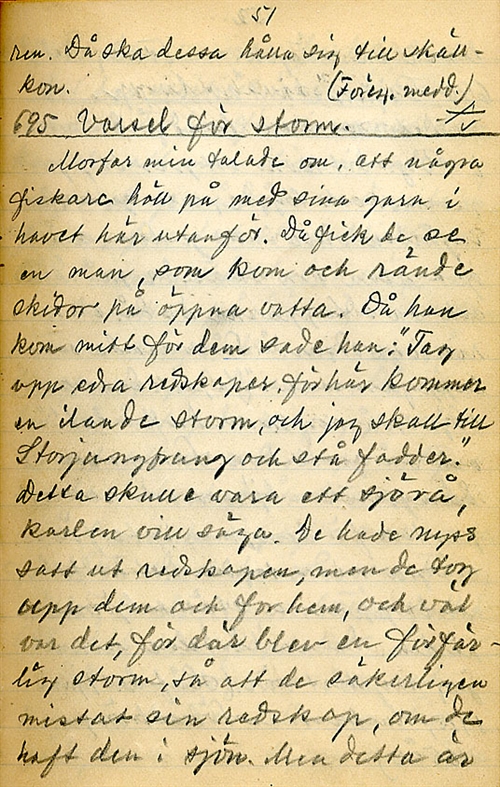 51
ren. Då ska dessa hålla sig till skäll-
kon.
(Föreg. medd.)
695 Varsel för storm.
Morfar min talade om, att några
fiskare höll på med sina garn i
havet här utanför. Då fick de se
en man, som kom och rände
skidor på öppna vatta. Då han
kom mitt för dem sade han: "Tag
upp edra redskaper, för här kommer
en ilande storm, och jag skall till
Storjungfrung och stå fadder."
Detta skulle vara ett sjörå,
karlen vill säga. De hade nyss
satt ut redskapen, men de tog
upp dem och for hem, och väl
var det, för där blev en förfär-
lig storm, så att de säkerligen
mistat sin redskap, om de
haft den i sjön. Men detta är